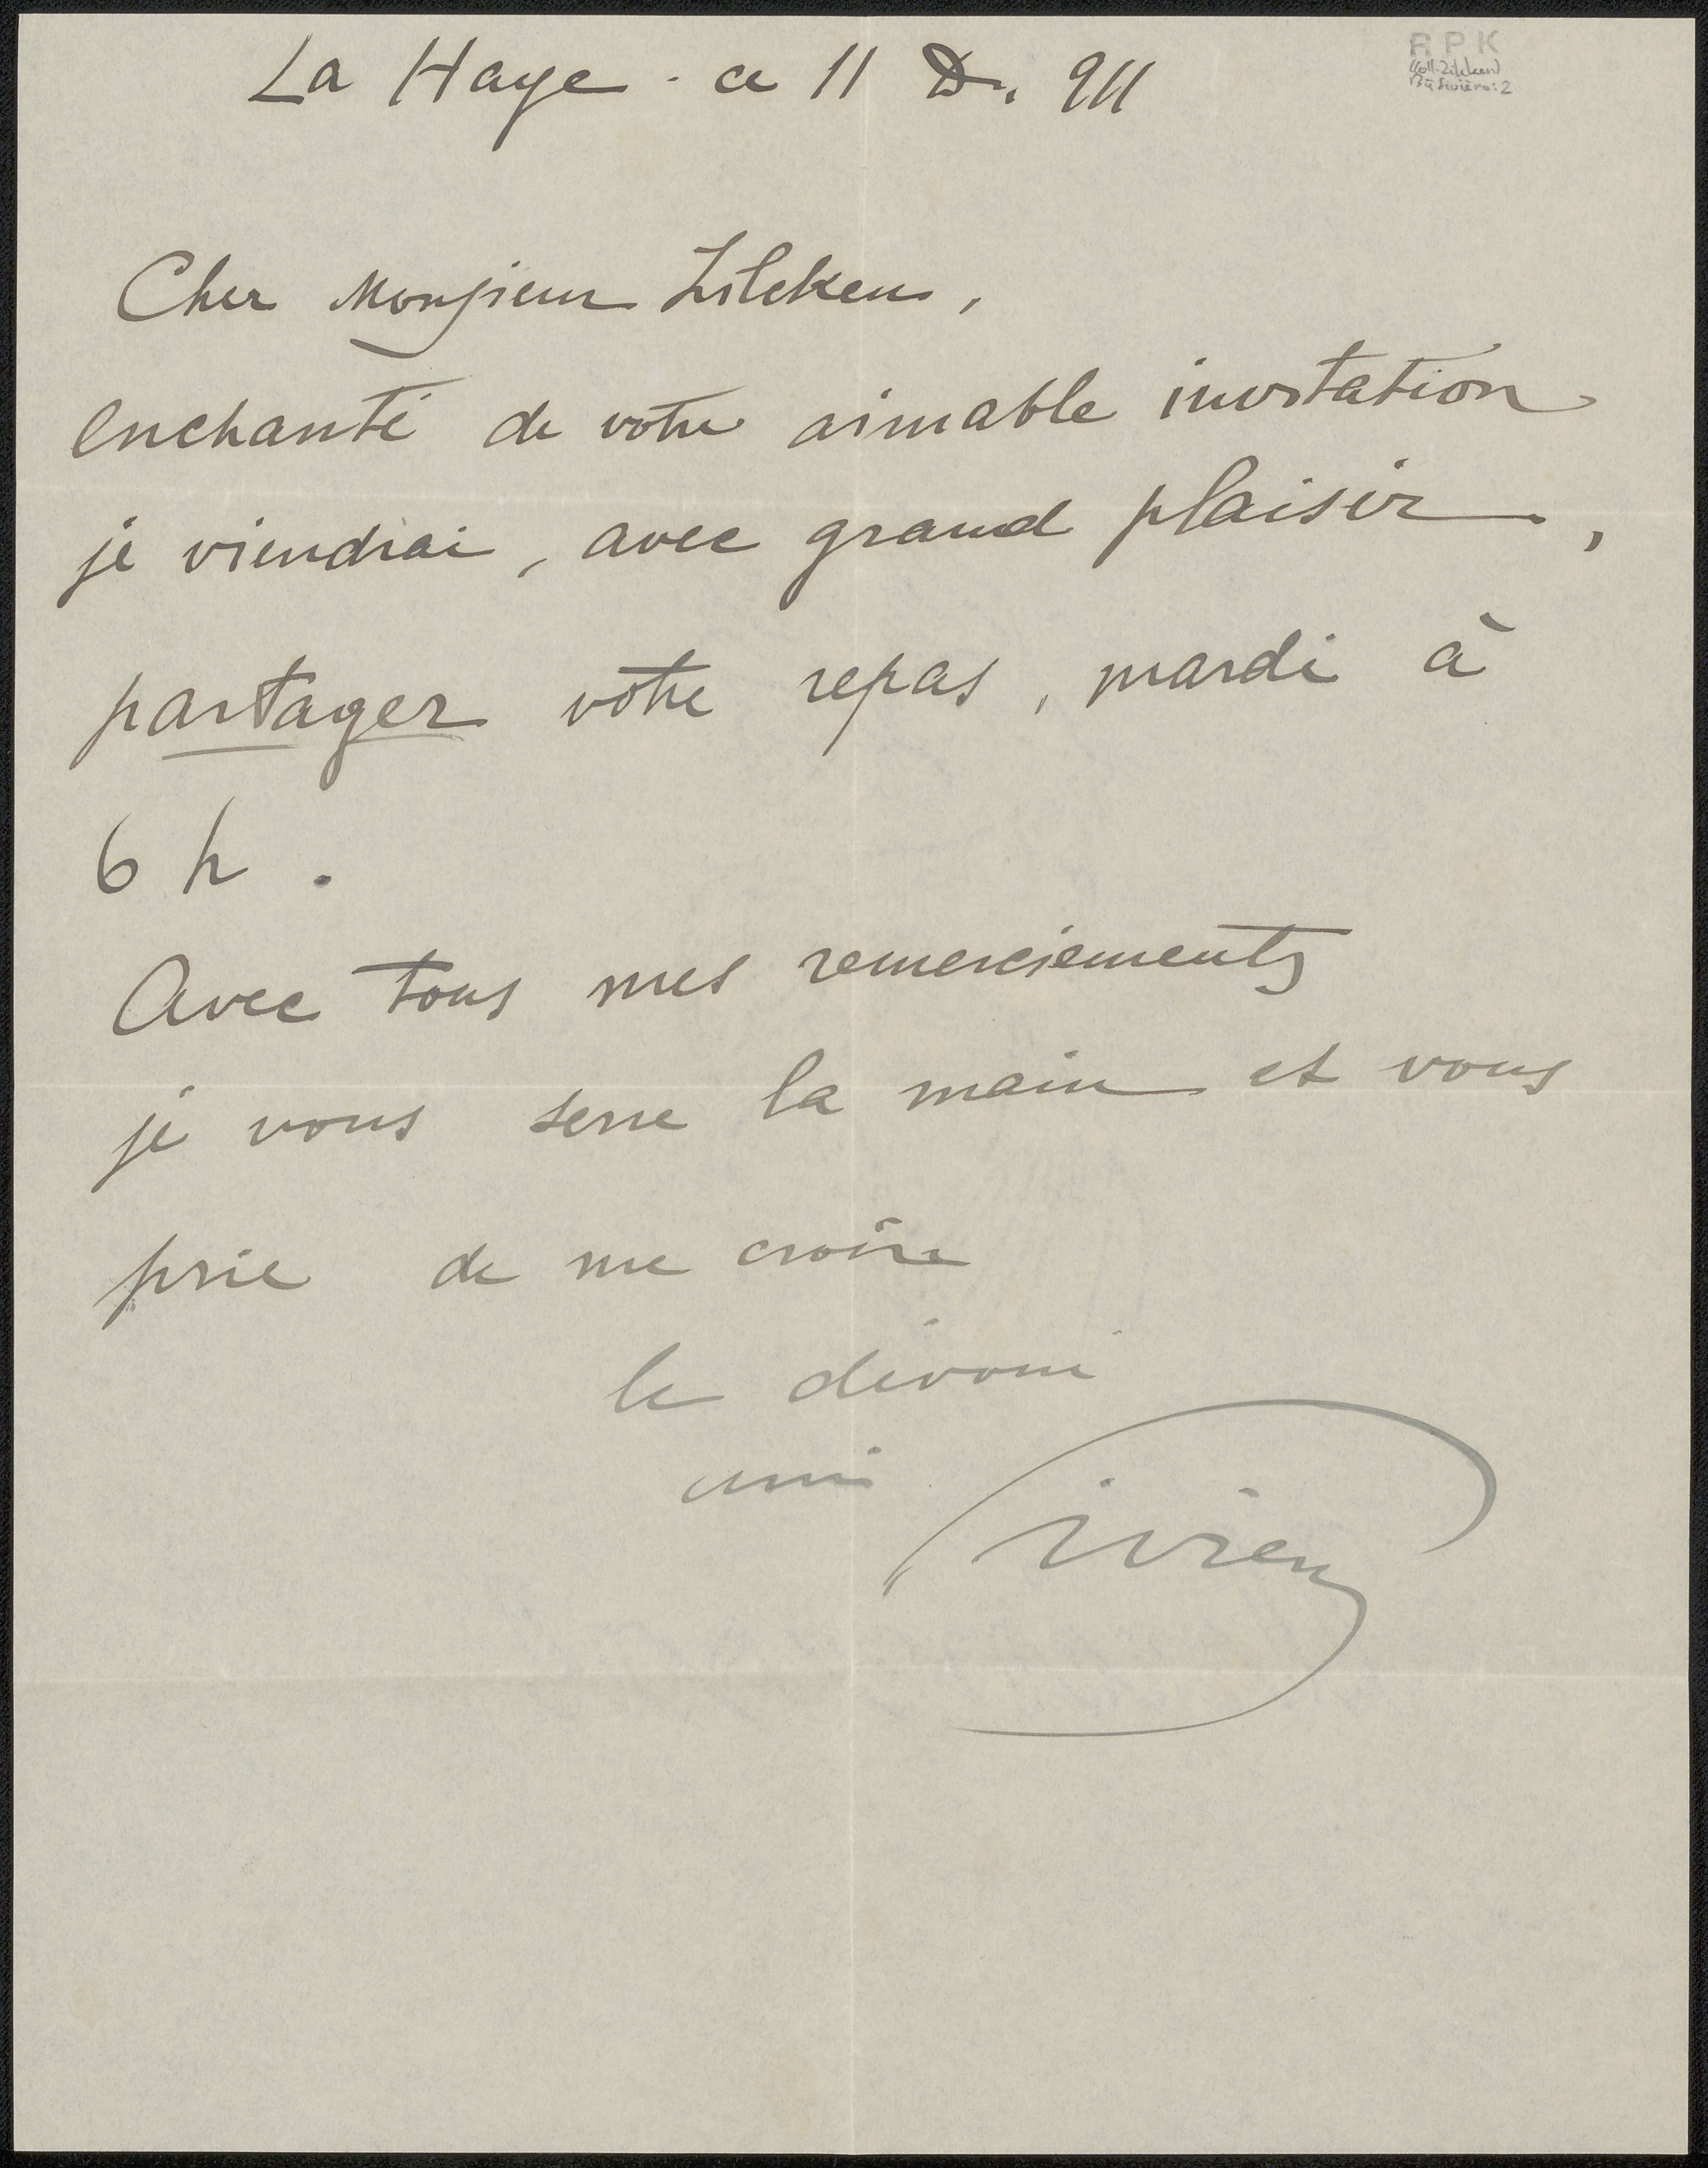 La Haye . ce 11 D... 911
R P K
(Coll. Zilcken)
Cher Monsieur Zilcken,
enchanté de votre aimable invitation
je viendrai, avec grand plaisir,
partager votre repas, mardi à
6 h .
Avec tous mes remerciements
je vous serre la main et vous
prie de me croire
le dévoué
ami